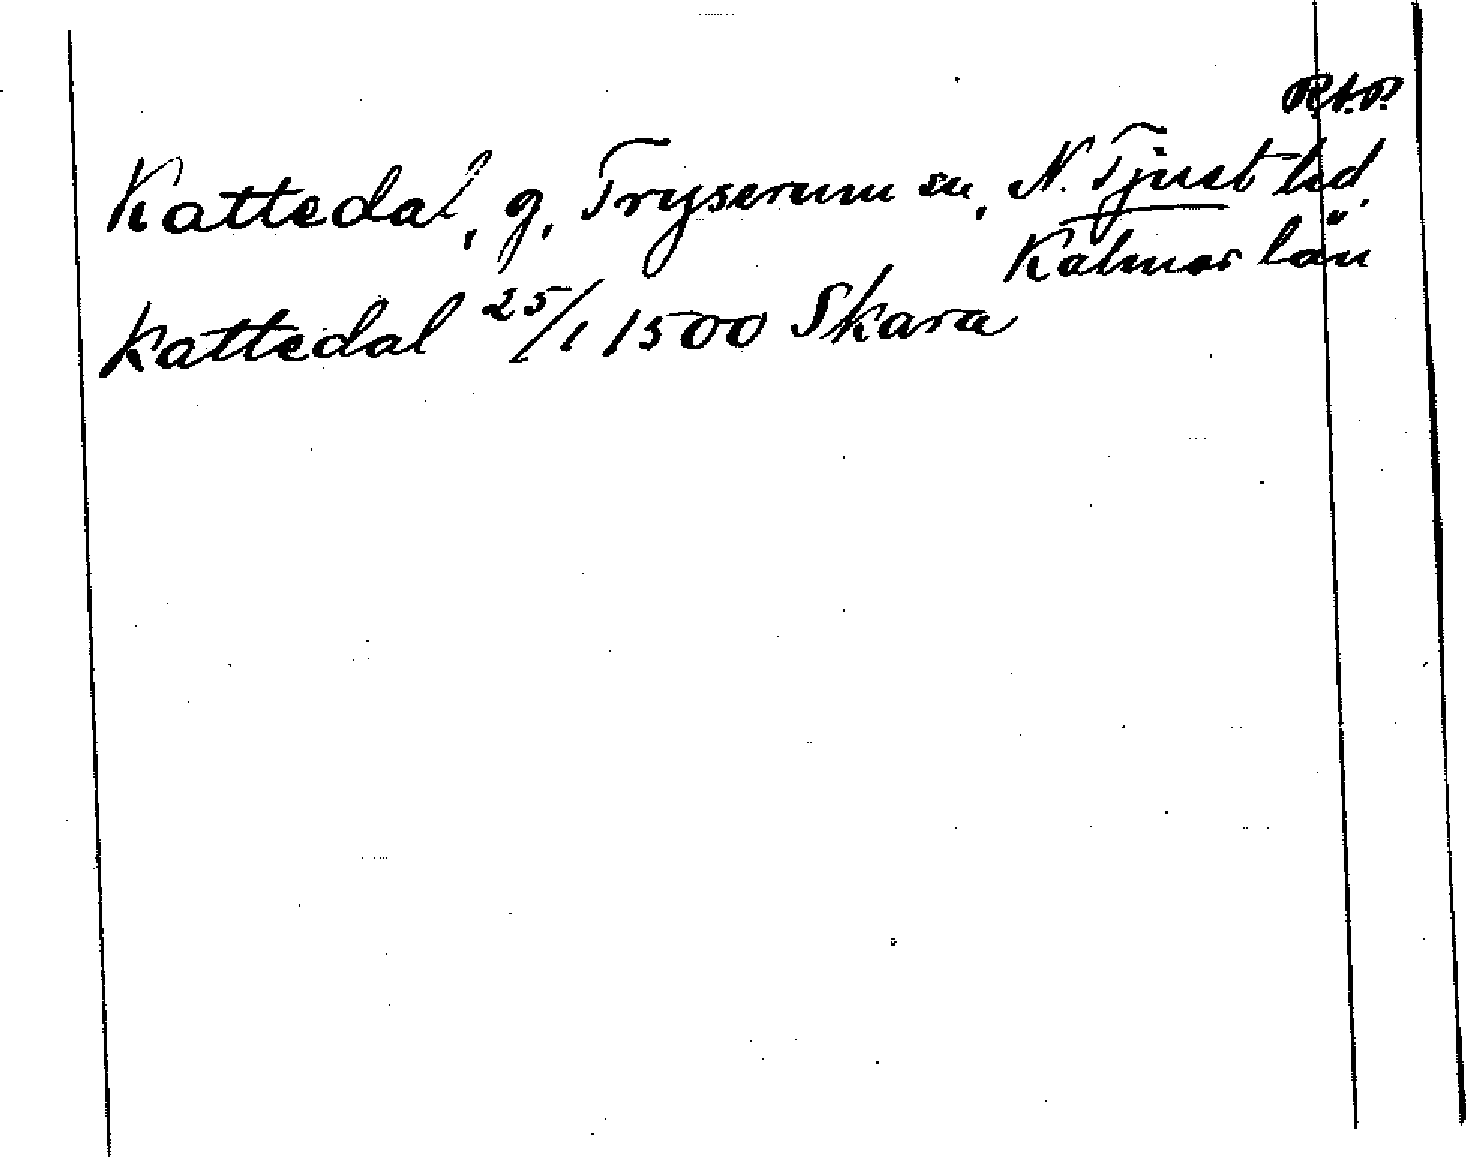 R.A.P.
Kattedal, g, Tryserum sn, N. Tjust hd.
Kalmar län
Kattedal 25/1 1500 Skara